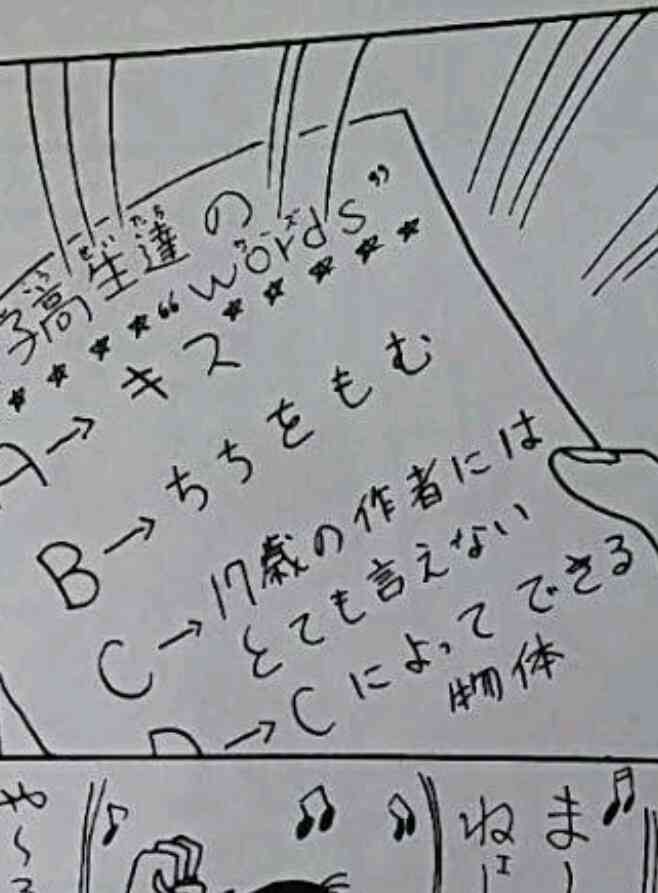 子高生達の
“words”
A→キス
B→ちちをもむ
C→17歳の作者には
とても言えない
D→Cによってできる
物体
まー
ねェー
や〜